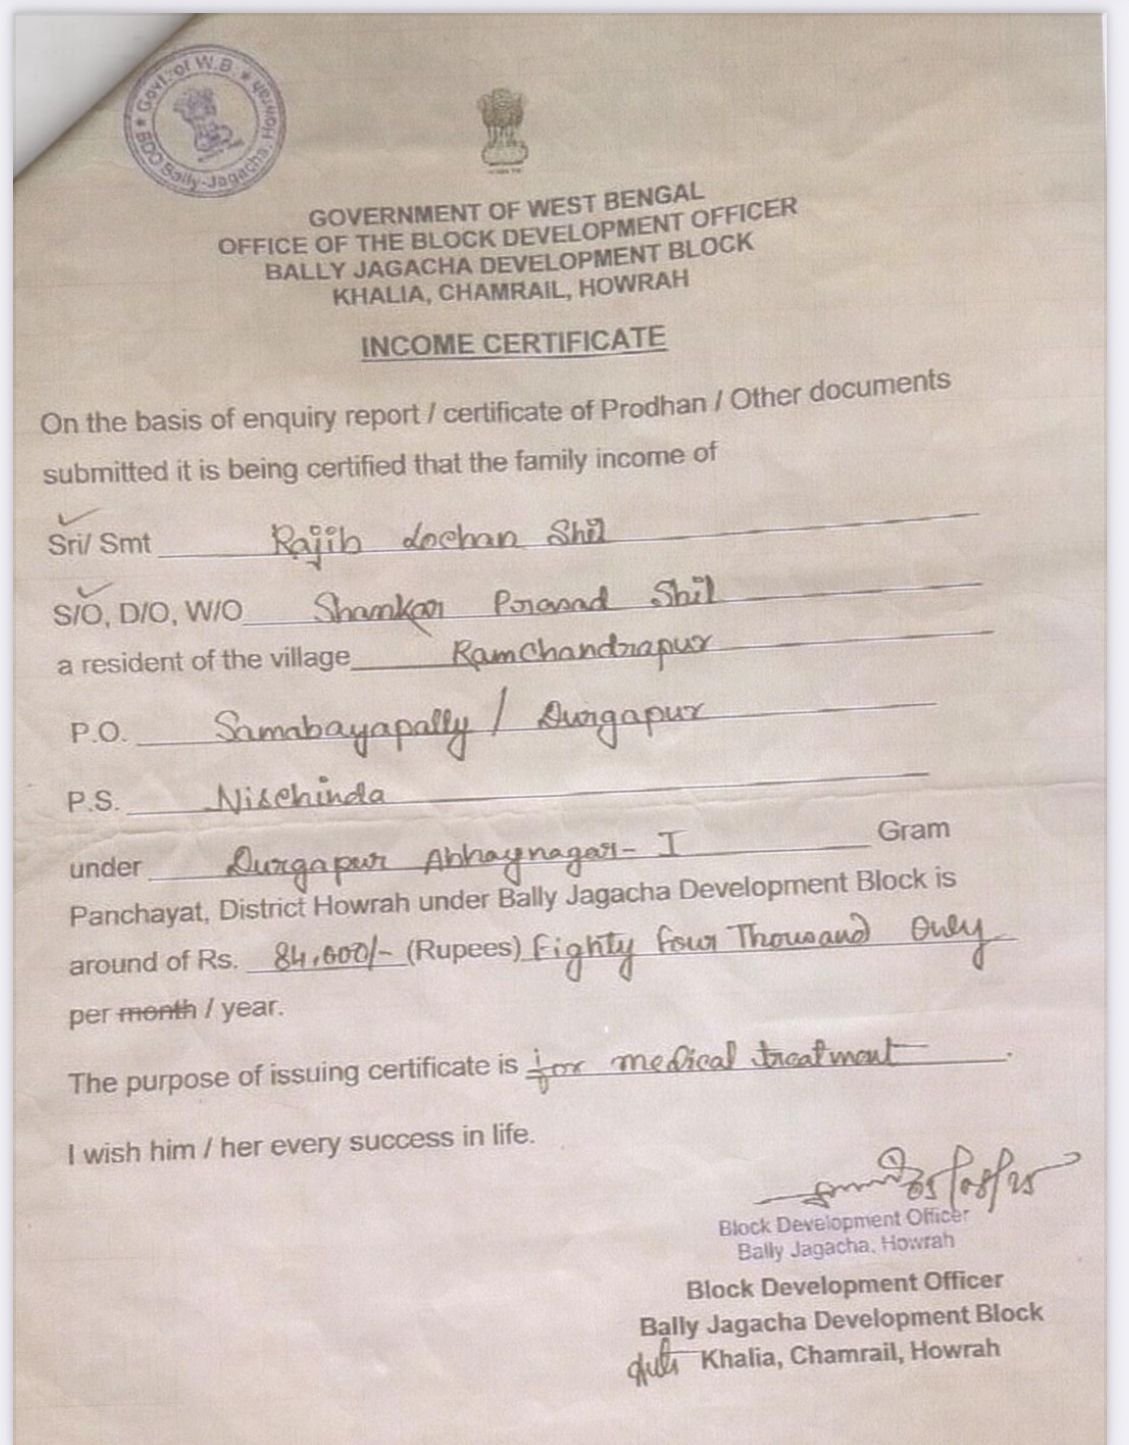 ★ Govt. of W.B. ★
BDO Bally-Jagacha, Howrah
GOVERNMENT OF WEST BENGAL
OFFICE OF THE BLOCK DEVELOPMENT OFFICER
BALLY JAGACHA DEVELOPMENT BLOCK
KHALIA, CHAMRAIL, HOWRAH
INCOME CERTIFICATE
On the basis of enquiry report / certificate of Prodhan / Other documents
submitted it is being certified that the family income of
Sri/ Smt Rajib Lochan Shil
S/O, D/O, W/O Shankar Prasad Shil
a resident of the village Ramchandrapur
P.O. Samabayapally / Durgapur
P.S. Nischinda
under Durgapur Abhaynagar - I Gram
Panchayat, District Howrah under Bally Jagacha Development Block is
around of Rs. 84,000/- (Rupees) Eighty four Thousand Only
per month / year.
The purpose of issuing certificate is for medical treatment .
I wish him / her every success in life.
Block Development Officer
Bally Jagacha, Howrah
Block Development Officer
Bally Jagacha Development Block
Khalia, Chamrail, Howrah